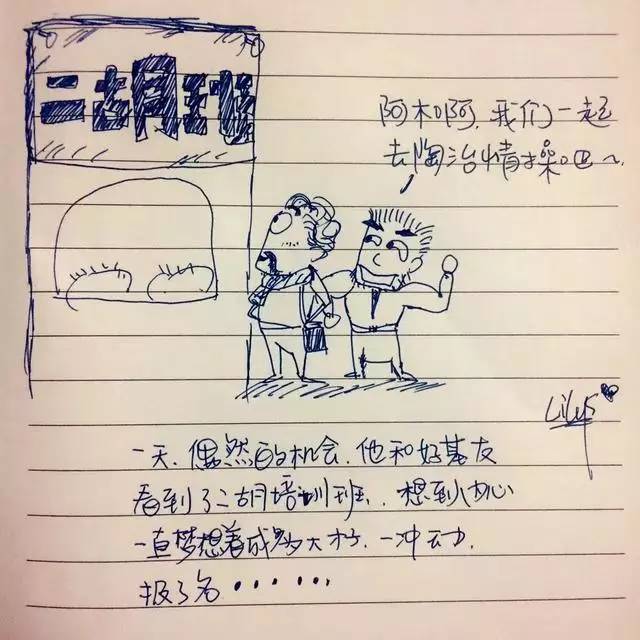 二胡班
阿木啊,我们一起
去陶冶情操吧~
Lily's
一天.偶然的机会.他和好基友
看到了二胡培训班.想到内心
一直梦想着成为大才.一冲动.
报了名······